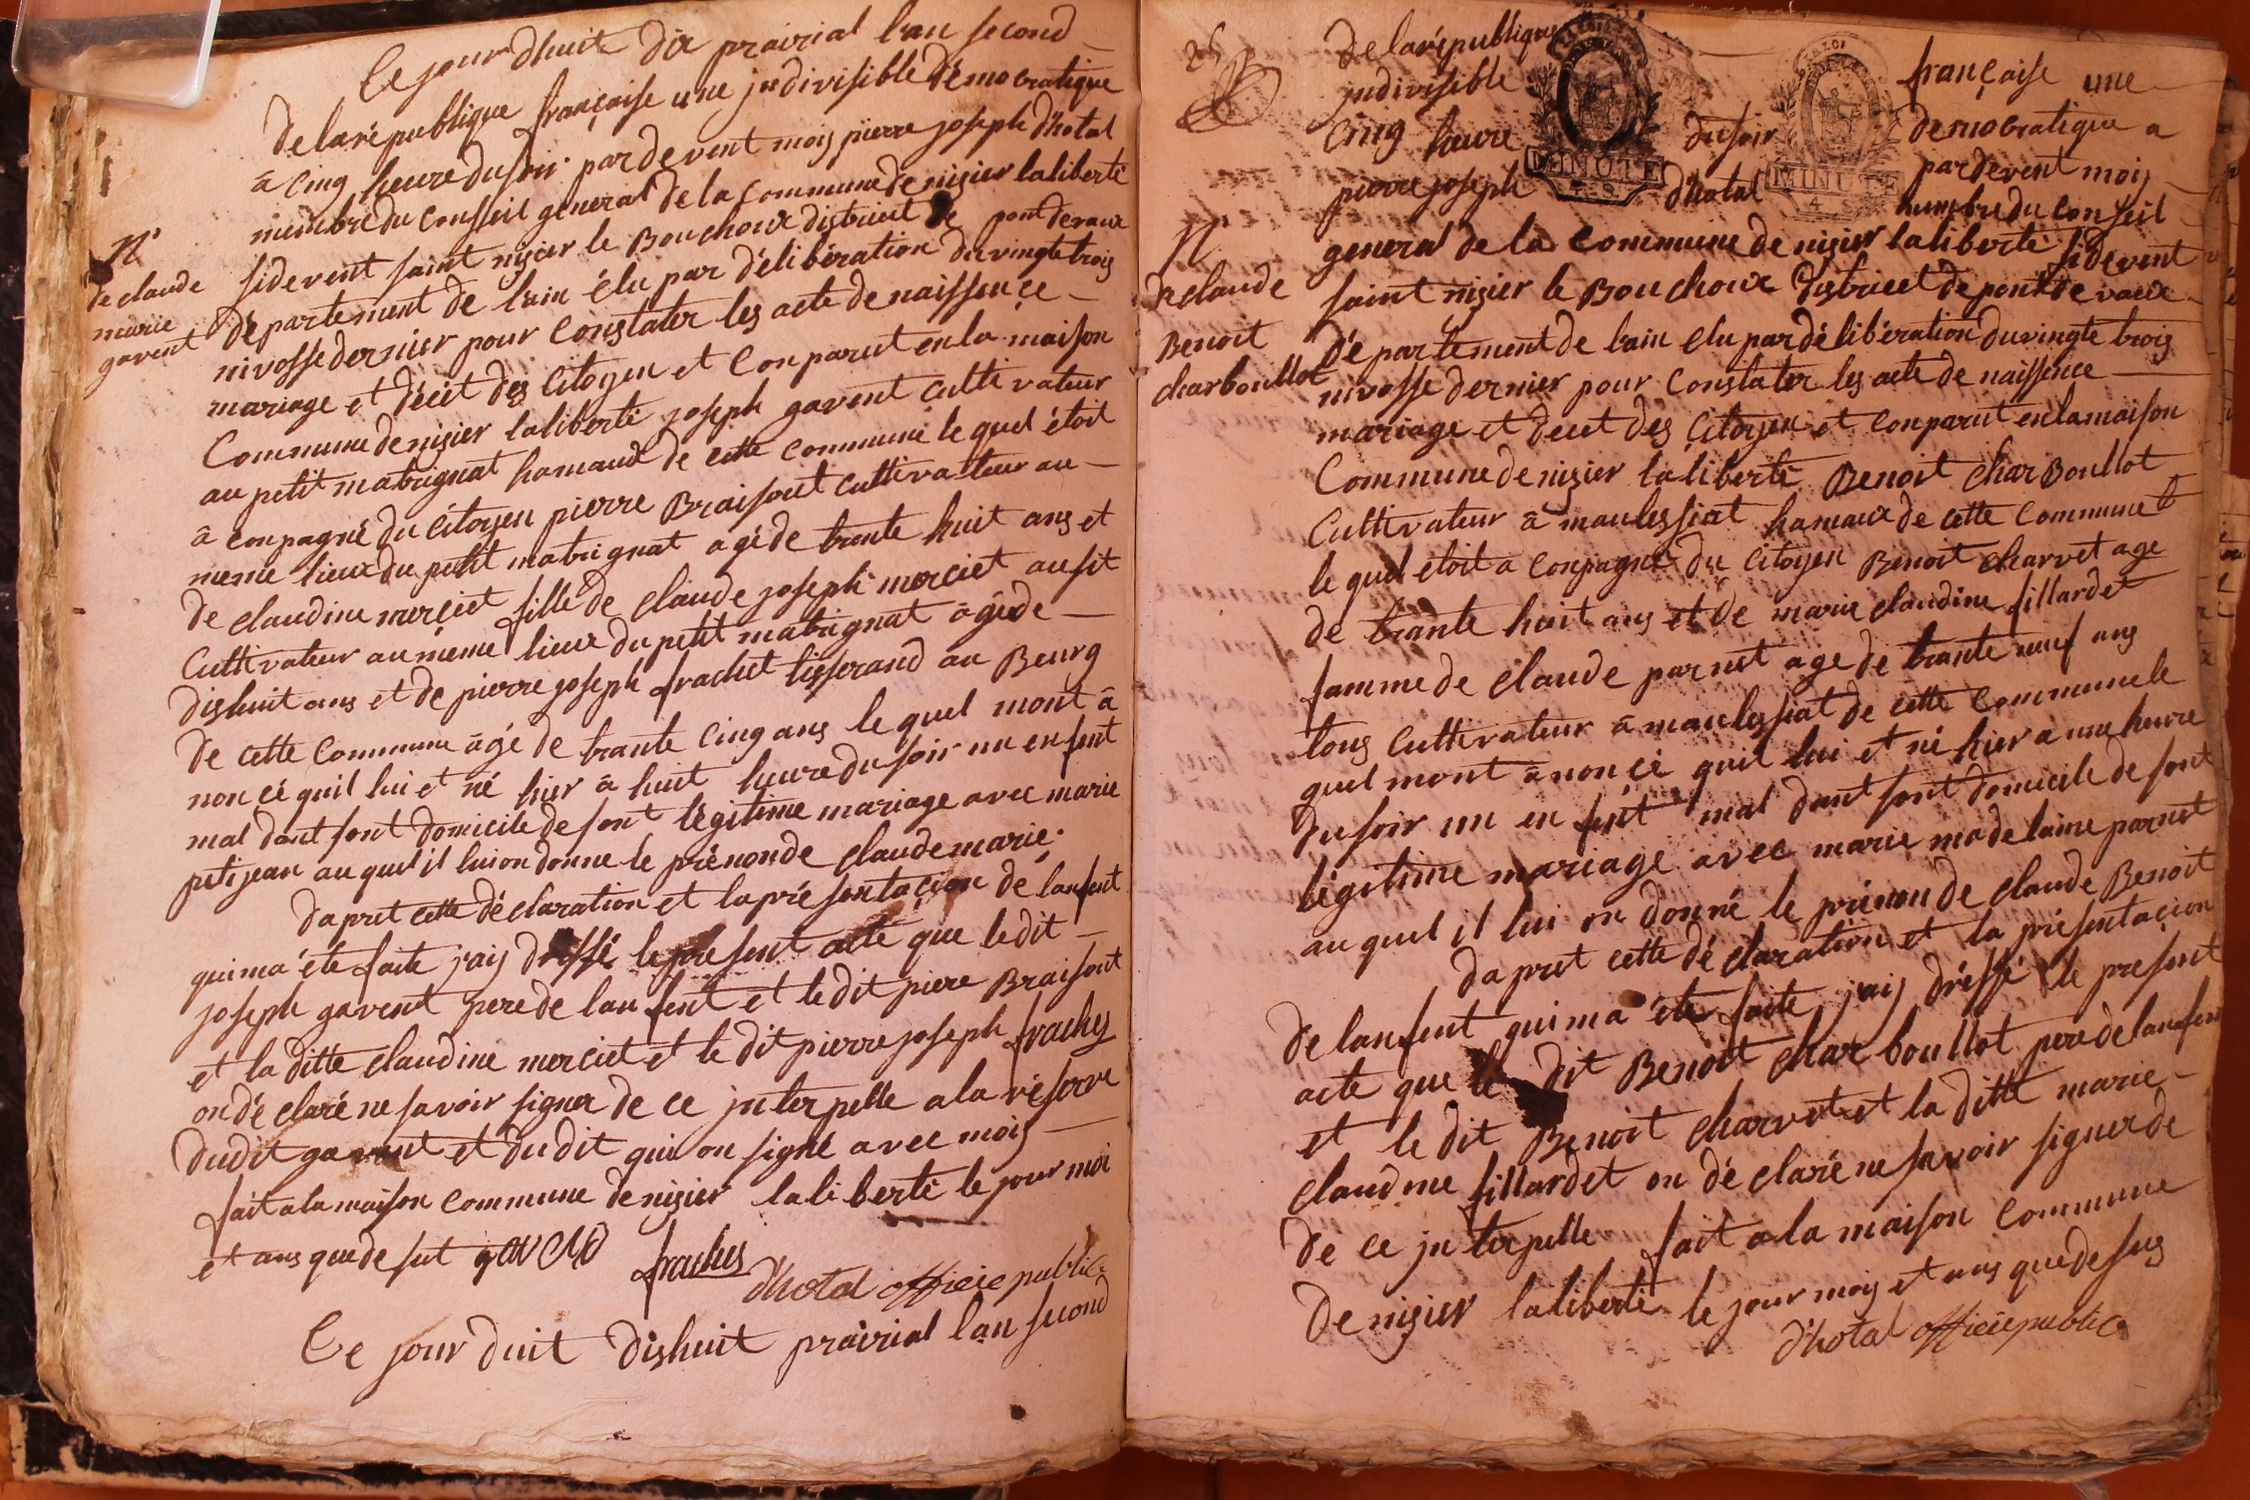 Ce jour dhuit dix prairial lan second
de la république française une jndivisible démocratique
à cinq heure du soir par devent mois pierre joseph dhotal
membre du conseil general de la commune de nizier laliberté
si devent saint nizier le Bouchoux district de pont devaux
département de lain élu par délibération du vingte trois
nivosse dernier pour constater les acte de naissence
mariage et décet des citoyen et conparut en la maison
commune de nizier laliberté joseph gavent cultivateur
au petit matrignat hamaux de cette commune le quel étoit
a conpagné du citoyen pierre Braisout cultivateur au
meme lieux du petit matrignat agé de trante huit ans et
de claudine merciet fille de claude joseph merciet ausit
cultivateur au meme lieux du petit matrignat agé de
dishuit ans et de pierre joseph frachet tisserand au Beurg
de cette commune âgé de trante cinq ans le quel mont à
non cé quil lui et né hier à huit heure du soir un enfent
mal dont sont domicile de sont légitime mariage avec marie
petijean au quel il lui on donne le prénon de claude marie
N°
de claude
marie
gavent
dapret cette déclaration et la présentacion de lanfent
qui ma été faite jais dressé le present acte que le dit
joseph gavent pere de lanfent et le dit piere Braisout
et la ditte claudine merciet et le dit pierre joseph frachet
on déclaré ne savoir signer de ce jnterpelle a la réserve
du dit gavent et du dit qui on signé avec mois
fait a la maison commune de nizier laliberté le jour moi
et ans que de sut gavend
frachet
dhotal officie public
Ce jour duit dishuit prairial lan second
de la république française une
jndivisible démocratique a
cinq heure du soir par devent mois
pierre joseph dhotal membre du conseil
MINUTE
MINUTE
general de la commune de nizier laliberté sidevent
saint nizier le Bouchoux district de pont de vaux
département de lain elu par délibération du vingte trois
nivosse dernier pour constater les acte de naissence
mariage et decet des citoyen et conparut en la maison
N
de claude
Benoit
charboullot
commune de nizier laliberté Benoit charBoullot
cultivateur à maulessiat hamaux de cette commune
le quel etoit a conpagné du citoyen Benoit charvet age
de trante huit ans et de marie claudine fillardet
famme de claude parnet age de trante neuf ans
tous cultivateur à maulessiat de cette commune le
quel mont à non cé quil lui et né hier a une heure
du soir un enfent mal dont sont domicile de sont
légitime mariage avec marie madelaine parnet
au quel il lui on donné le prénon de claude Benoit
dapret cette déclaration et la présentacion
de lanfent qui ma été faite jais dréssé le present
acte que le dit Benoit charboullot pere de lanfent
et le dit Benoit charvet et la ditte marie
claudine fillardet on déclaré ne savoir signer de
de ce jnterpelle fait a la maison commune
de nizier laliberté le jour mois et ans que de sus
dhotal officie public